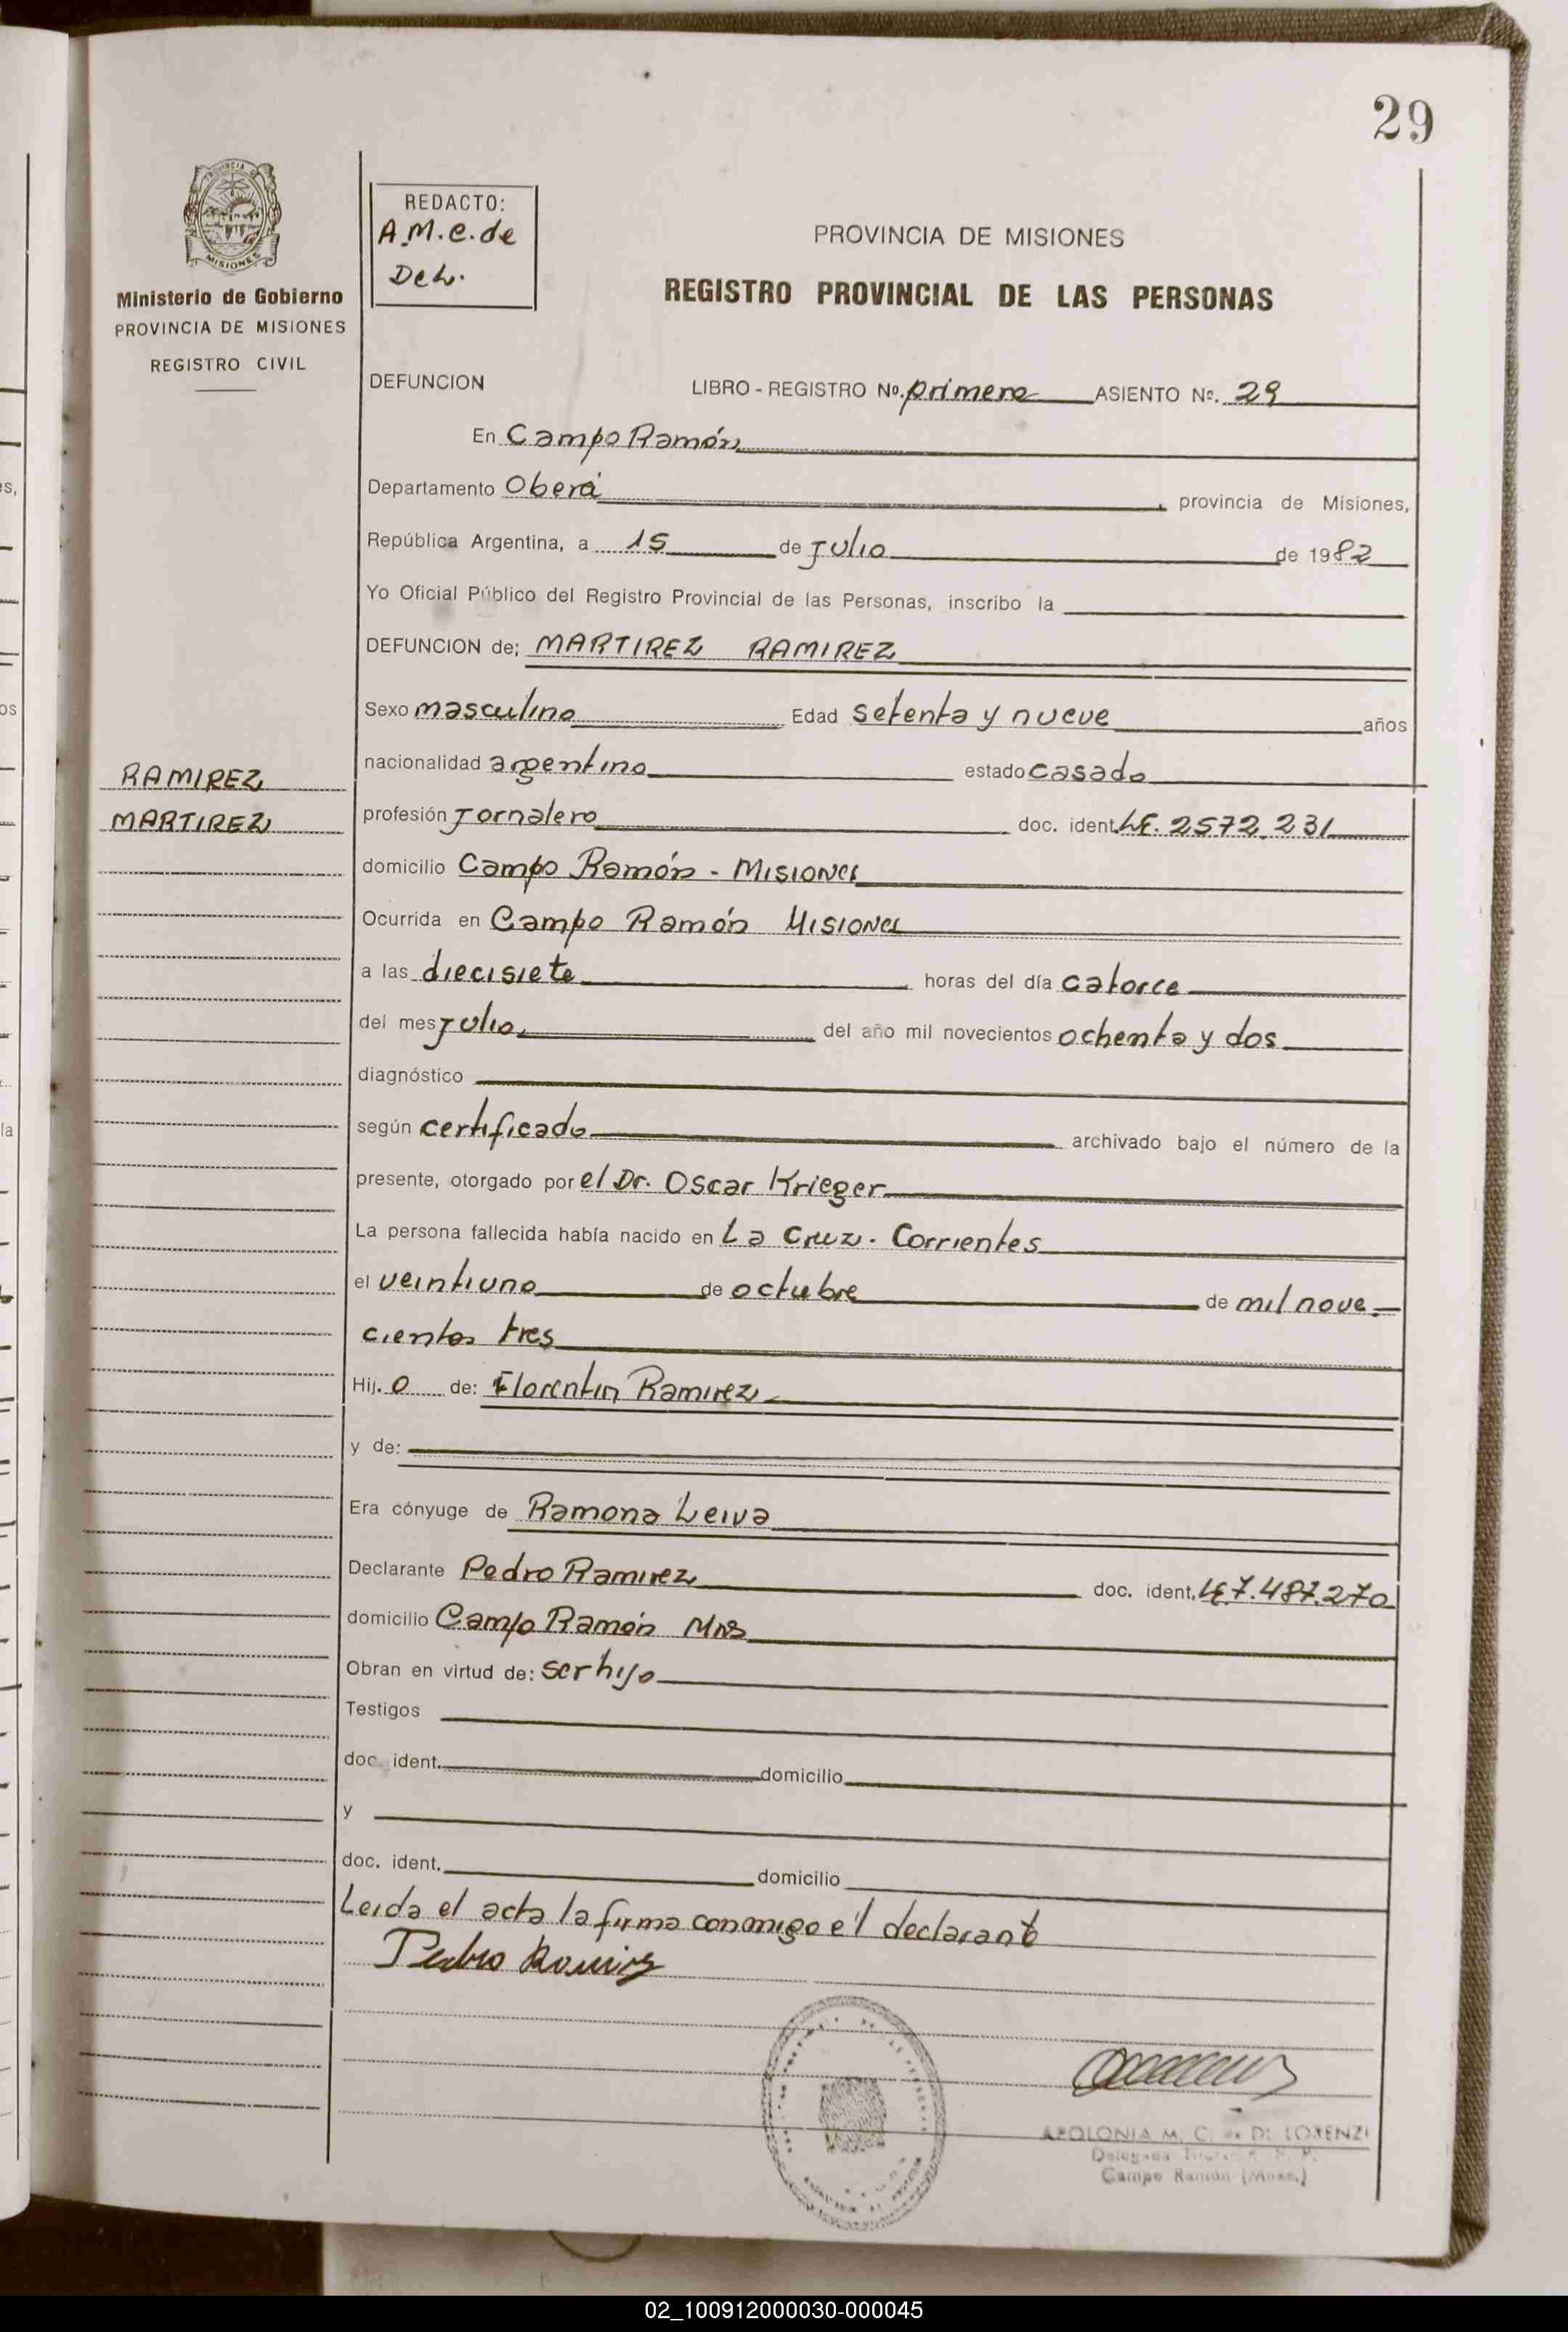 29
PROVINCIA
MISIONES
Ministerio de Gobierno
PROVINCIA DE MISIONES
REGISTRO CIVIL
REDACTO:
A.M.C. de
DeL.
PROVINCIA DE MISIONES
REGISTRO PROVINCIAL DE LAS PERSONAS
DEFUNCION LIBRO - REGISTRO Nº. primero ASIENTO Nº. 29
En Campo Ramón
Departamento Oberá, provincia de Misiones,
República Argentina, a 15 de Julio de 1982
Yo Oficial Público del Registro Provincial de las Personas, inscribo la
DEFUNCION de; MARTIREZ RAMIREZ
Sexo masculino Edad setenta y nueve años
RAMIREZ
MARTIREZ
nacionalidad argentino estado casado
profesión Jornalero doc. ident. LE. 2572.231
domicilio Campo Ramón - Misiones
Ocurrida en Campo Ramón Misiones
a las diecisiete horas del día catorce
del mes Julio, del año mil novecientos ochenta y dos
diagnóstico
según certificado archivado bajo el número de la
presente, otorgado por el Dr. Oscar Krieger
La persona fallecida había nacido en La Cruz. Corrientes
el veintiuno de octubre de mil nove-
cientos tres
Hij.o de: Florentin Ramirez
y de:
Era cónyuge de Ramona Leiva
Declarante Pedro Ramirez doc. ident. LE 7.487.270
domicilio Campo Ramón Mns
Obran en virtud de: ser hijo
Testigos
doc. ident. domicilio
y
doc. ident. domicilio
Leida el acta la firma conmigo el declarante
Pedro Ramirez
APOLONIA M. C. de DI LORENZI
Delegada
Campo Ramón (Mnes.)
02_100912000030-000045